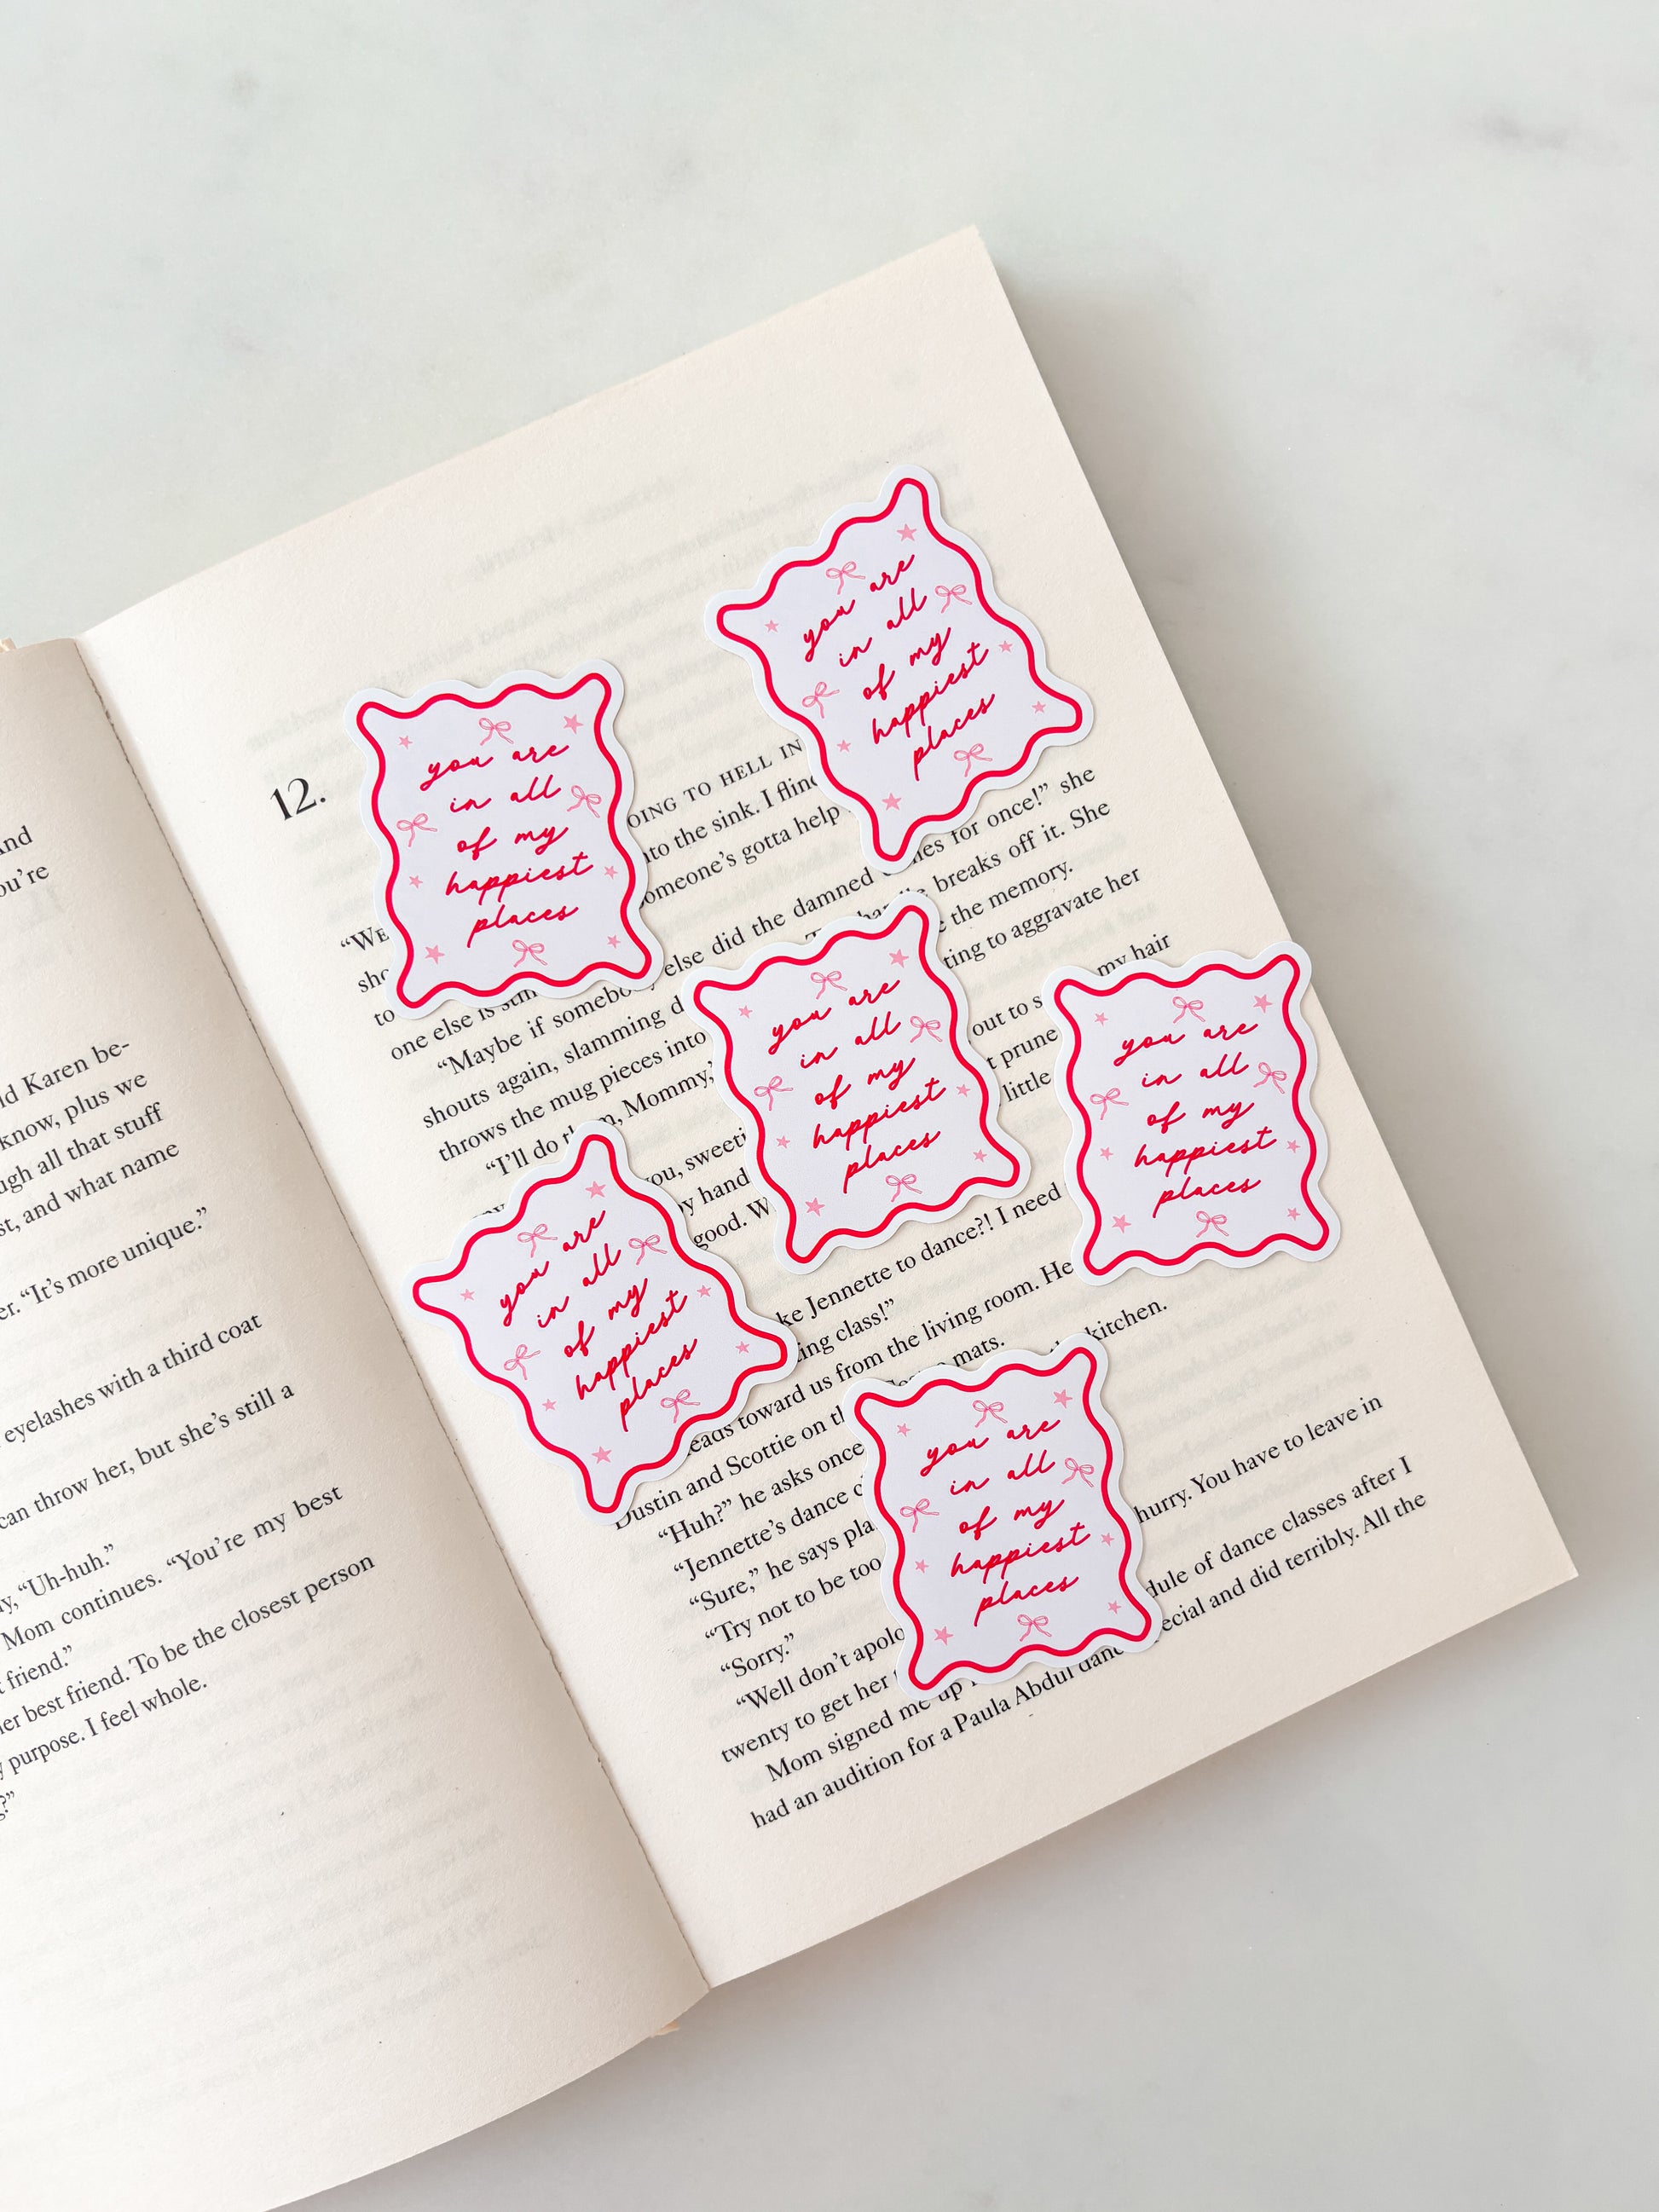 And
ou're
ld Karen be-
know, plus we
ugh all that stuff
st, and what name
er. “It's more unique.”
eyelashes with a third coat
can throw her, but she's still a
y, “Uh-huh.”
Mom continues. “You're my best
friend.”
er best friend. To be the closest person
purpose. I feel whole.
12.
OING TO HELL IN
nto the sink. I flinc
omeone's gotta help
to
one else is still
“Maybe if somebody else did the damned dishes for once!” she
shouts again, slamming d
breaks off it. She
throws the mug pieces into
the memory.
“I'll do them, Mommy,
ting to aggravate her
you, sweeti
out to s
my hair
by hand
t prune
good. W
little
ke Jennette to dance?! I need
cing class!”
eads toward us from the living room. He
Dustin and Scottie on th
mats.
kitchen.
“Huh?” he asks once
“Jennette's dance c
“Sure,” he says pla
“Try not to be too
hurry. You have to leave in
“Sorry.”
“Well don't apolo
twenty to get her
dule of dance classes after I
Mom signed me up
had an audition for a Paula Abdul dance special and did terribly. All the
you are
in all
of my
happiest
places
you are
in all
of my
happiest
places
you are
in all
of my
happiest
places
you are
in all
of my
happiest
places
you are
in all
of my
happiest
places
you are
in all
of my
happiest
places